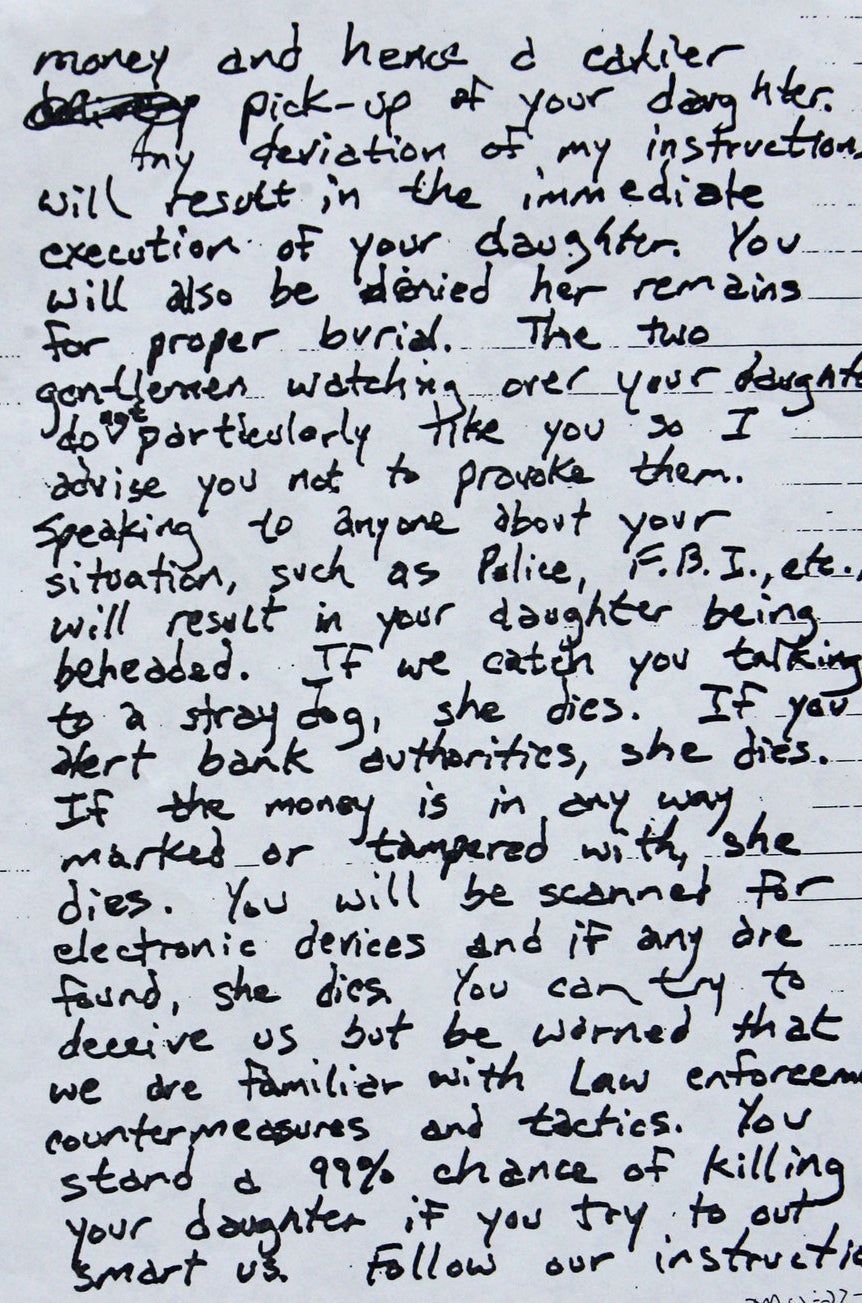 money and hence a earlier
pick-up of your daughter.
Any deviation of my instruction
will result in the immediate
execution of your daughter. You
will also be denied her remains
for proper burial. The two
gentlemen watching over your daught
do not particularly like you so I
advise you not to provoke them.
Speaking to anyone about your
situation, such as Police, F.B.I., etc.,
will result in your daughter being
beheaded. If we catch you talking
to a stray dog, she dies. If you
alert bank authorities, she dies.
If the money is in any way
marked or tampered with, she
dies. You will be scanned for
electronic devices and if any are
found, she dies. You can try to
deceive us but be warned that
we are familiar with Law enforcem
countermeasures and tactics. You
stand a 99% chance of killing
your daughter if you try to out
smart us. Follow our instructio